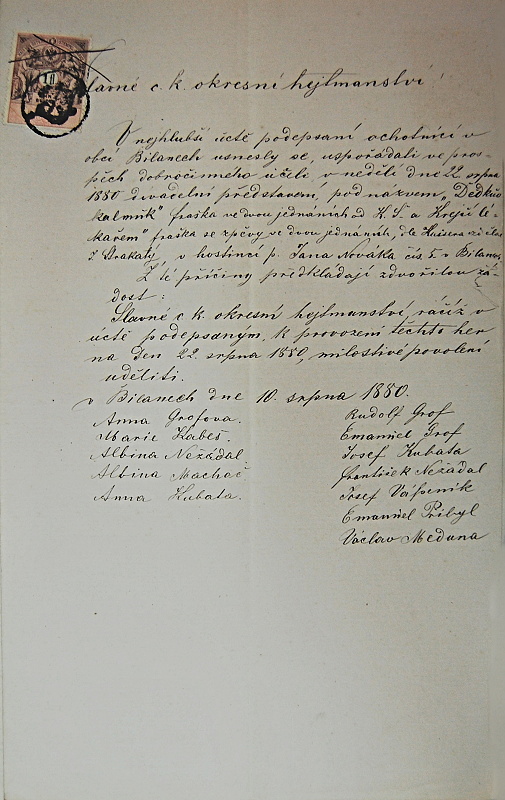 Slavné c. k. okresní hejtmanství!
V nejhlubší úctě podepsaní ochotníci v
obci Bílanech usnesly se, uspořádali ve pros-
pěch dobročinného účelu, v neděli dne 22. srpna
1880 divadelní představení, pod názvem „Dědkův
kalmuk" fraška ve dvou jednáních od K. S. a Krejčí lé-
kařem" fraška se zpěvy ve dvou jednáních, dle Kaisera
J. Strakatý, v hostinci p. Jana Nováka čís 5. v Bílanech
Z té příčiny předkládají zdvořilou žá-
dost:
Slavné c k. okresní hejtmanství, ráčíž v
úctě podepsaným, k provození těchto her
na den 22. srpna 1880, milostivé povolení
uděliti.
v Bílanech dne 10. srpna 1880.
Anna Grofova.
Marie Kabeš.
Albina Nežádal
Albina Machač
Anna Kubata.
Rudolf Grof
Emanuel Grof
Josef Kubata
František Nežádal
Josef Vápeník
Emanuel Přibyl
Václav Meduna